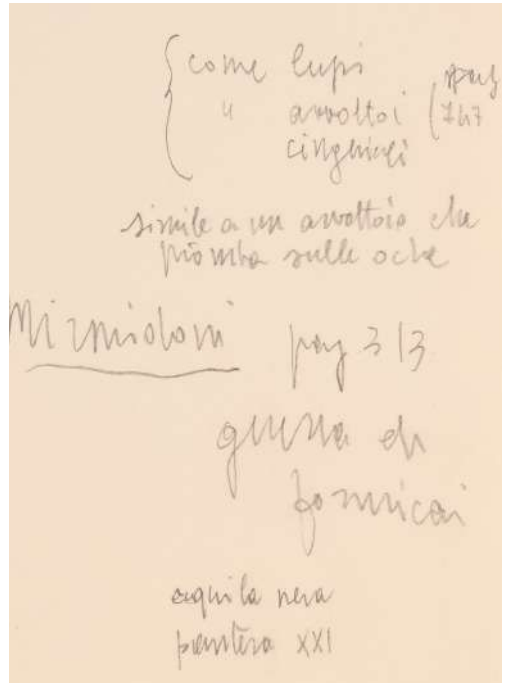 come lupi
" avvoltoi (pag
747
cinghiali
simile a un avvoltoio che
piomba sulle oche
Mirmidoni pag 313
guerra di
formicai
aquila nera
pantera XXI